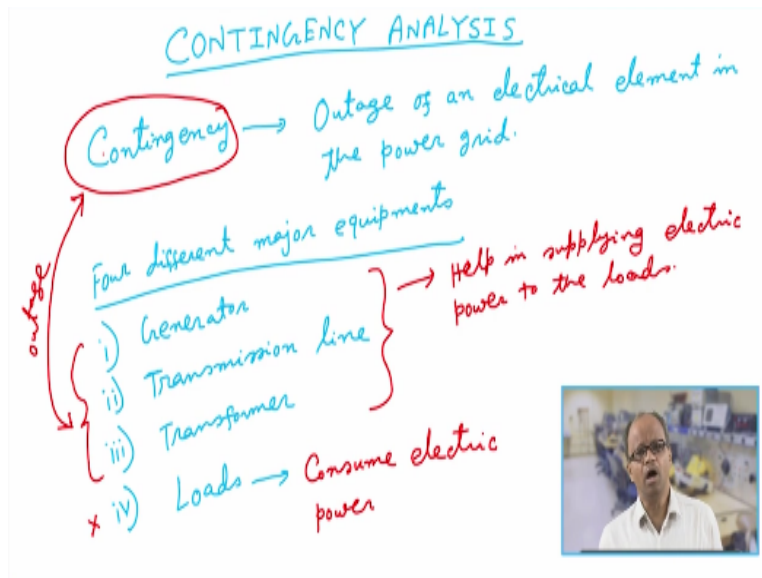 CONTINGENCY ANALYSIS
Contingency → Outage of an electrical element in
the power grid.
Four different major equipments
i) Generator
ii) Transmission line
iii) Transformer
→ Help in supplying electric
power to the loads.
outage
x iv) Loads → Consume electric
power